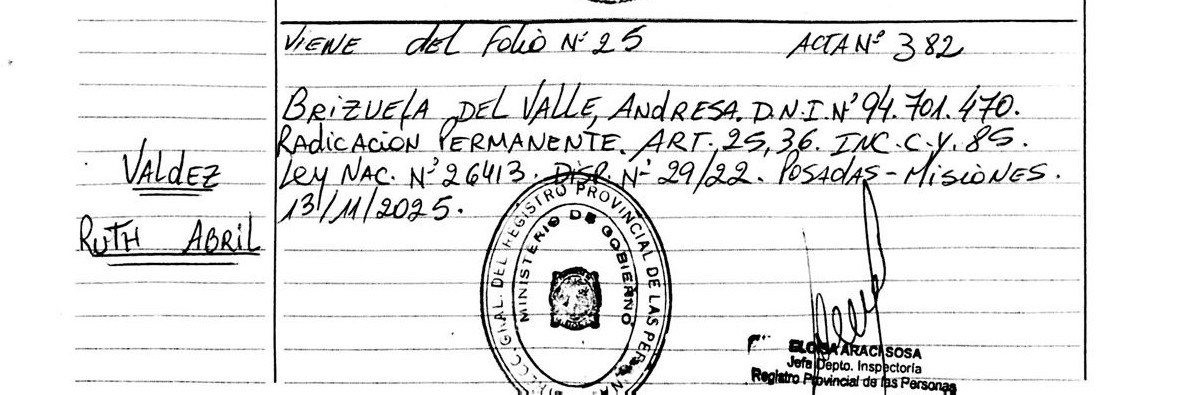 VIENE del Folio Nº 25 ACTA Nº 382
BRIZUELA DEL VALLE, ANDRESA. D.N.I. Nº 94.701.470.
RADICACION PERMANENTE. ART. 25, 36. INC. C. Y. 85.
Ley NAC. Nº 26413. DISP. Nº 29/22. POSADAS - MISIONES.
13/11/2025.
VALDEZ
RUTH ABRIL
GRAL. DEL REGISTRO PROVINCIAL DE LAS
MINISTERIO DE GOBIERNO
ELOISA ARACI SOSA
Jefa Depto. Inspectoría
Registro Provincial de las Personas